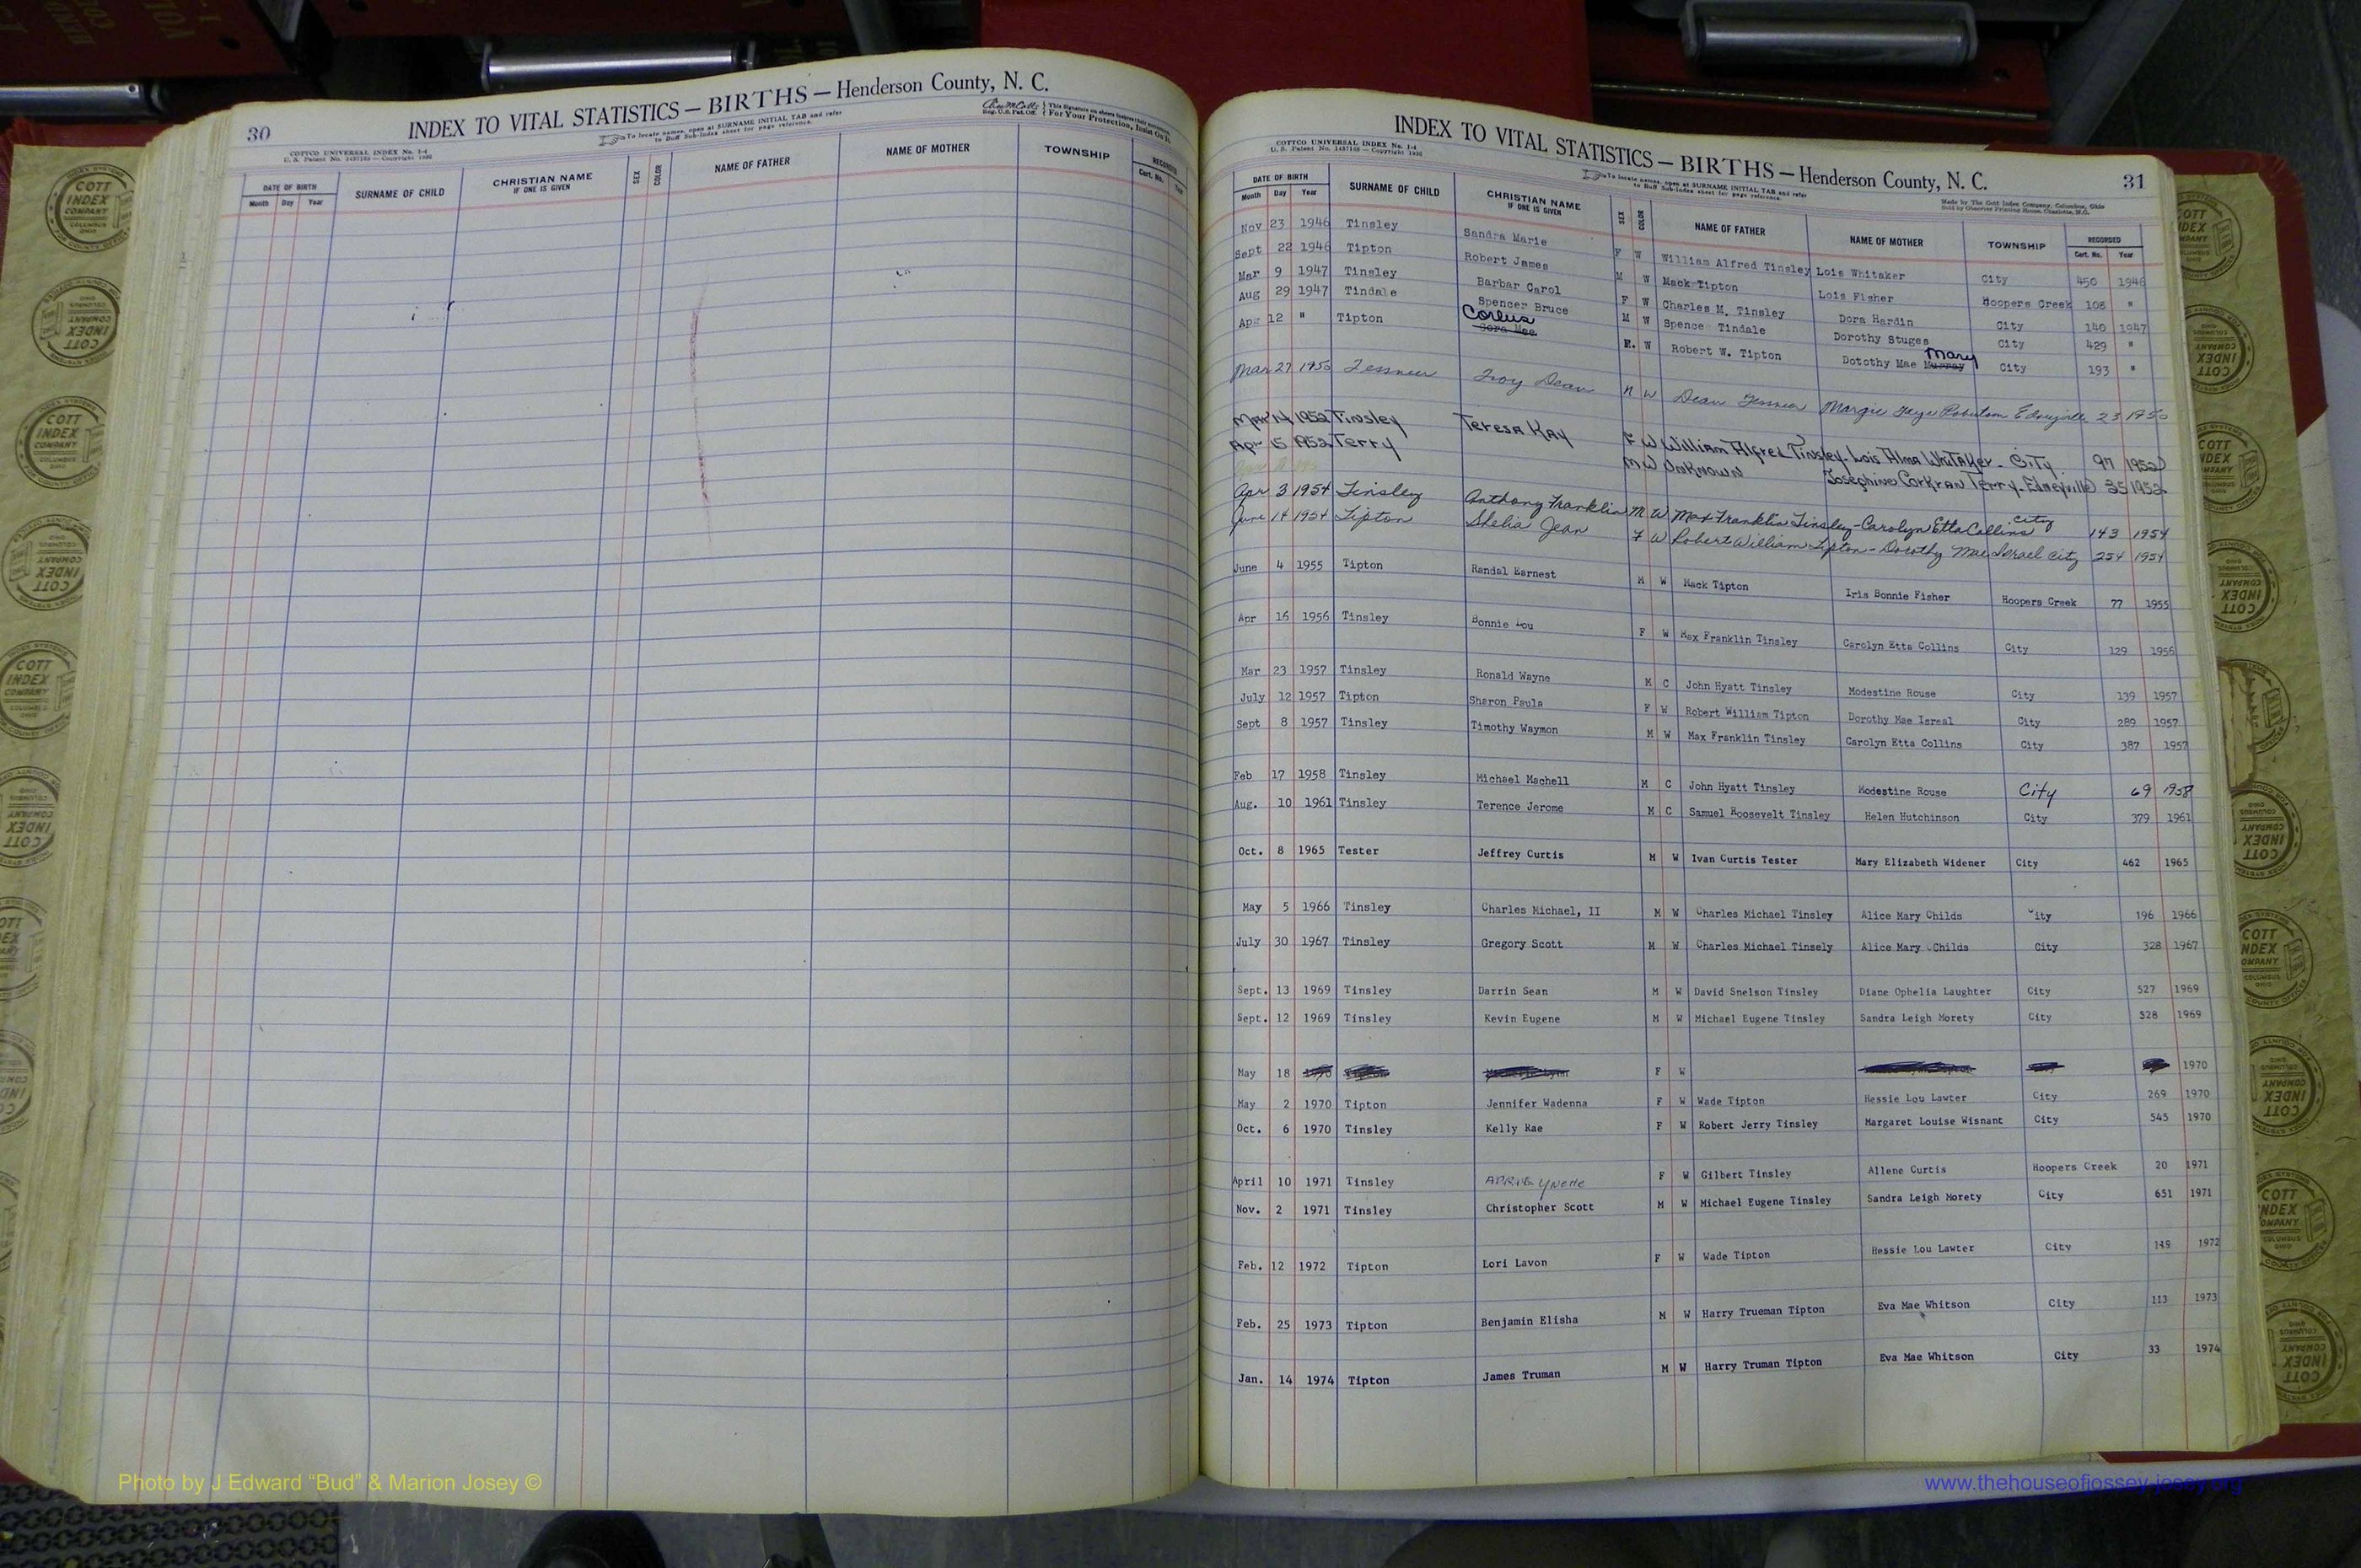 30
INDEX TO VITAL STATISTICS — BIRTHS — Henderson County, N. C.
COTTCO UNIVERSAL INDEX No. 1-4
To locate names, open at SURNAME INITIAL TAB and refer
to Buff Sub-Index sheet for page reference.
DATE OF BIRTH
Month Day Year
SURNAME OF CHILD
CHRISTIAN NAME
IF ONE IS GIVEN
SEX
COLOR
NAME OF FATHER
NAME OF MOTHER
TOWNSHIP
INDEX TO VITAL STATISTICS — BIRTHS — Henderson County, N. C.
31
COTTCO UNIVERSAL INDEX No. 1-4
To locate names, open at SURNAME INITIAL TAB and refer
to Buff Sub-Index sheet for page reference.
Made by The Cott Index Company, Columbus, Ohio
Sold by Observer Printing House, Charlotte, N.C.
DATE OF BIRTH
Month Day Year
SURNAME OF CHILD
CHRISTIAN NAME
IF ONE IS GIVEN
SEX
COLOR
NAME OF FATHER
NAME OF MOTHER
TOWNSHIP
RECORDED
Cert. No. Year
Nov 23 1946 Tinsley Sandra Marie F W William Alfred Tinsley Lois Whitaker City 450 1946
Sept 22 1946 Tipton Robert James M W Mack Tipton Lois Fisher Hoopers Creek 108 "
Mar 9 1947 Tinsley Barbar Carol F W Charles M. Tinsley Dora Hardin City 140 1947
Aug 29 1947 Tindale Spencer Bruce M W Spence Tindale Dorothy Stuges City 429 "
Apr 12 " Tipton Cora Mae W Robert W. Tipton Dotothy Mae Murray Mary City 193 "
Mar 27 1950 Troy Dean W Dean Margie Edneyville 23 1950
Mar 14 1952 Tinsley Teresa Kay F W William Alfred Tinsley - Lois Alma Whitaker - City 97 1952
Apr 15 1952 Terry M W Unknown Josephine Corkran Terry - Edneyville 35 1952
Apr 3 1954 Tinsley Anthony Franklin M W Max Franklin Tinsley - Carolyn Etta Collins City 143 1954
June 14 1954 Tipton Shelia Jean F W Robert William Tipton - Dorothy Mae Israel City 254 1954
June 4 1955 Tipton Randal Earnest M W Mack Tipton Iris Bonnie Fisher Hoopers Creek 77 1955
Apr 16 1956 Tinsley Bonnie Lou F W Max Franklin Tinsley Carolyn Etta Collins City 129 1956
Mar 23 1957 Tinsley Ronald Wayne M C John Hyatt Tinsley Modestine Rouse City 139 1957
July 12 1957 Tipton Sharon Paula F W Robert William Tipton Dorothy Mae Isreal City 289 1957
Sept 8 1957 Tinsley Timothy Waymon M W Max Franklin Tinsley Carolyn Etta Collins City 387 1957
Feb 17 1958 Tinsley Michael Machell M C John Hyatt Tinsley Modestine Rouse City 69 1958
Aug. 10 1961 Tinsley Terence Jerome M C Samuel Roosevelt Tinsley Helen Hutchinson City 379 1961
Oct. 8 1965 Tester Jeffrey Curtis M W Ivan Curtis Tester Mary Elizabeth Widener City 462 1965
May 5 1966 Tinsley Charles Michael, II M W Charles Michael Tinsley Alice Mary Childs City 196 1966
July 30 1967 Tinsley Gregory Scott M W Charles Michael Tinsely Alice Mary Childs City 328 1967
Sept. 13 1969 Tinsley Darrin Sean M W David Snelson Tinsley Diane Ophelia Laughter City 527 1969
Sept. 12 1969 Tinsley Kevin Eugene M W Michael Eugene Tinsley Sandra Leigh Morety City 528 1969
May 18 F W 1970
May 2 1970 Tipton Jennifer Wadenna F W Wade Tipton Hessie Lou Lawter City 269 1970
Oct. 6 1970 Tinsley Kelly Rae F W Robert Jerry Tinsley Margaret Louise Wisnant City 545 1970
April 10 1971 Tinsley F W Gilbert Tinsley Allene Curtis Hoopers Creek 20 1971
Nov. 2 1971 Tinsley Christopher Scott M W Michael Eugene Tinsley Sandra Leigh Morety City 651 1971
Feb. 12 1972 Tipton Lori Lavon F W Wade Tipton Hessie Lou Lawter City 1972
Feb. 25 1973 Tipton Benjamin Elisha M W Harry Trueman Tipton Eva Mae Whitson City 113 1973
Jan. 14 1974 Tipton James Truman M W Harry Truman Tipton Eva Mae Whitson City 33 1974
Photo by J Edward “Bud” & Marion Josey ©
www.thehouseofjossey-josey.org